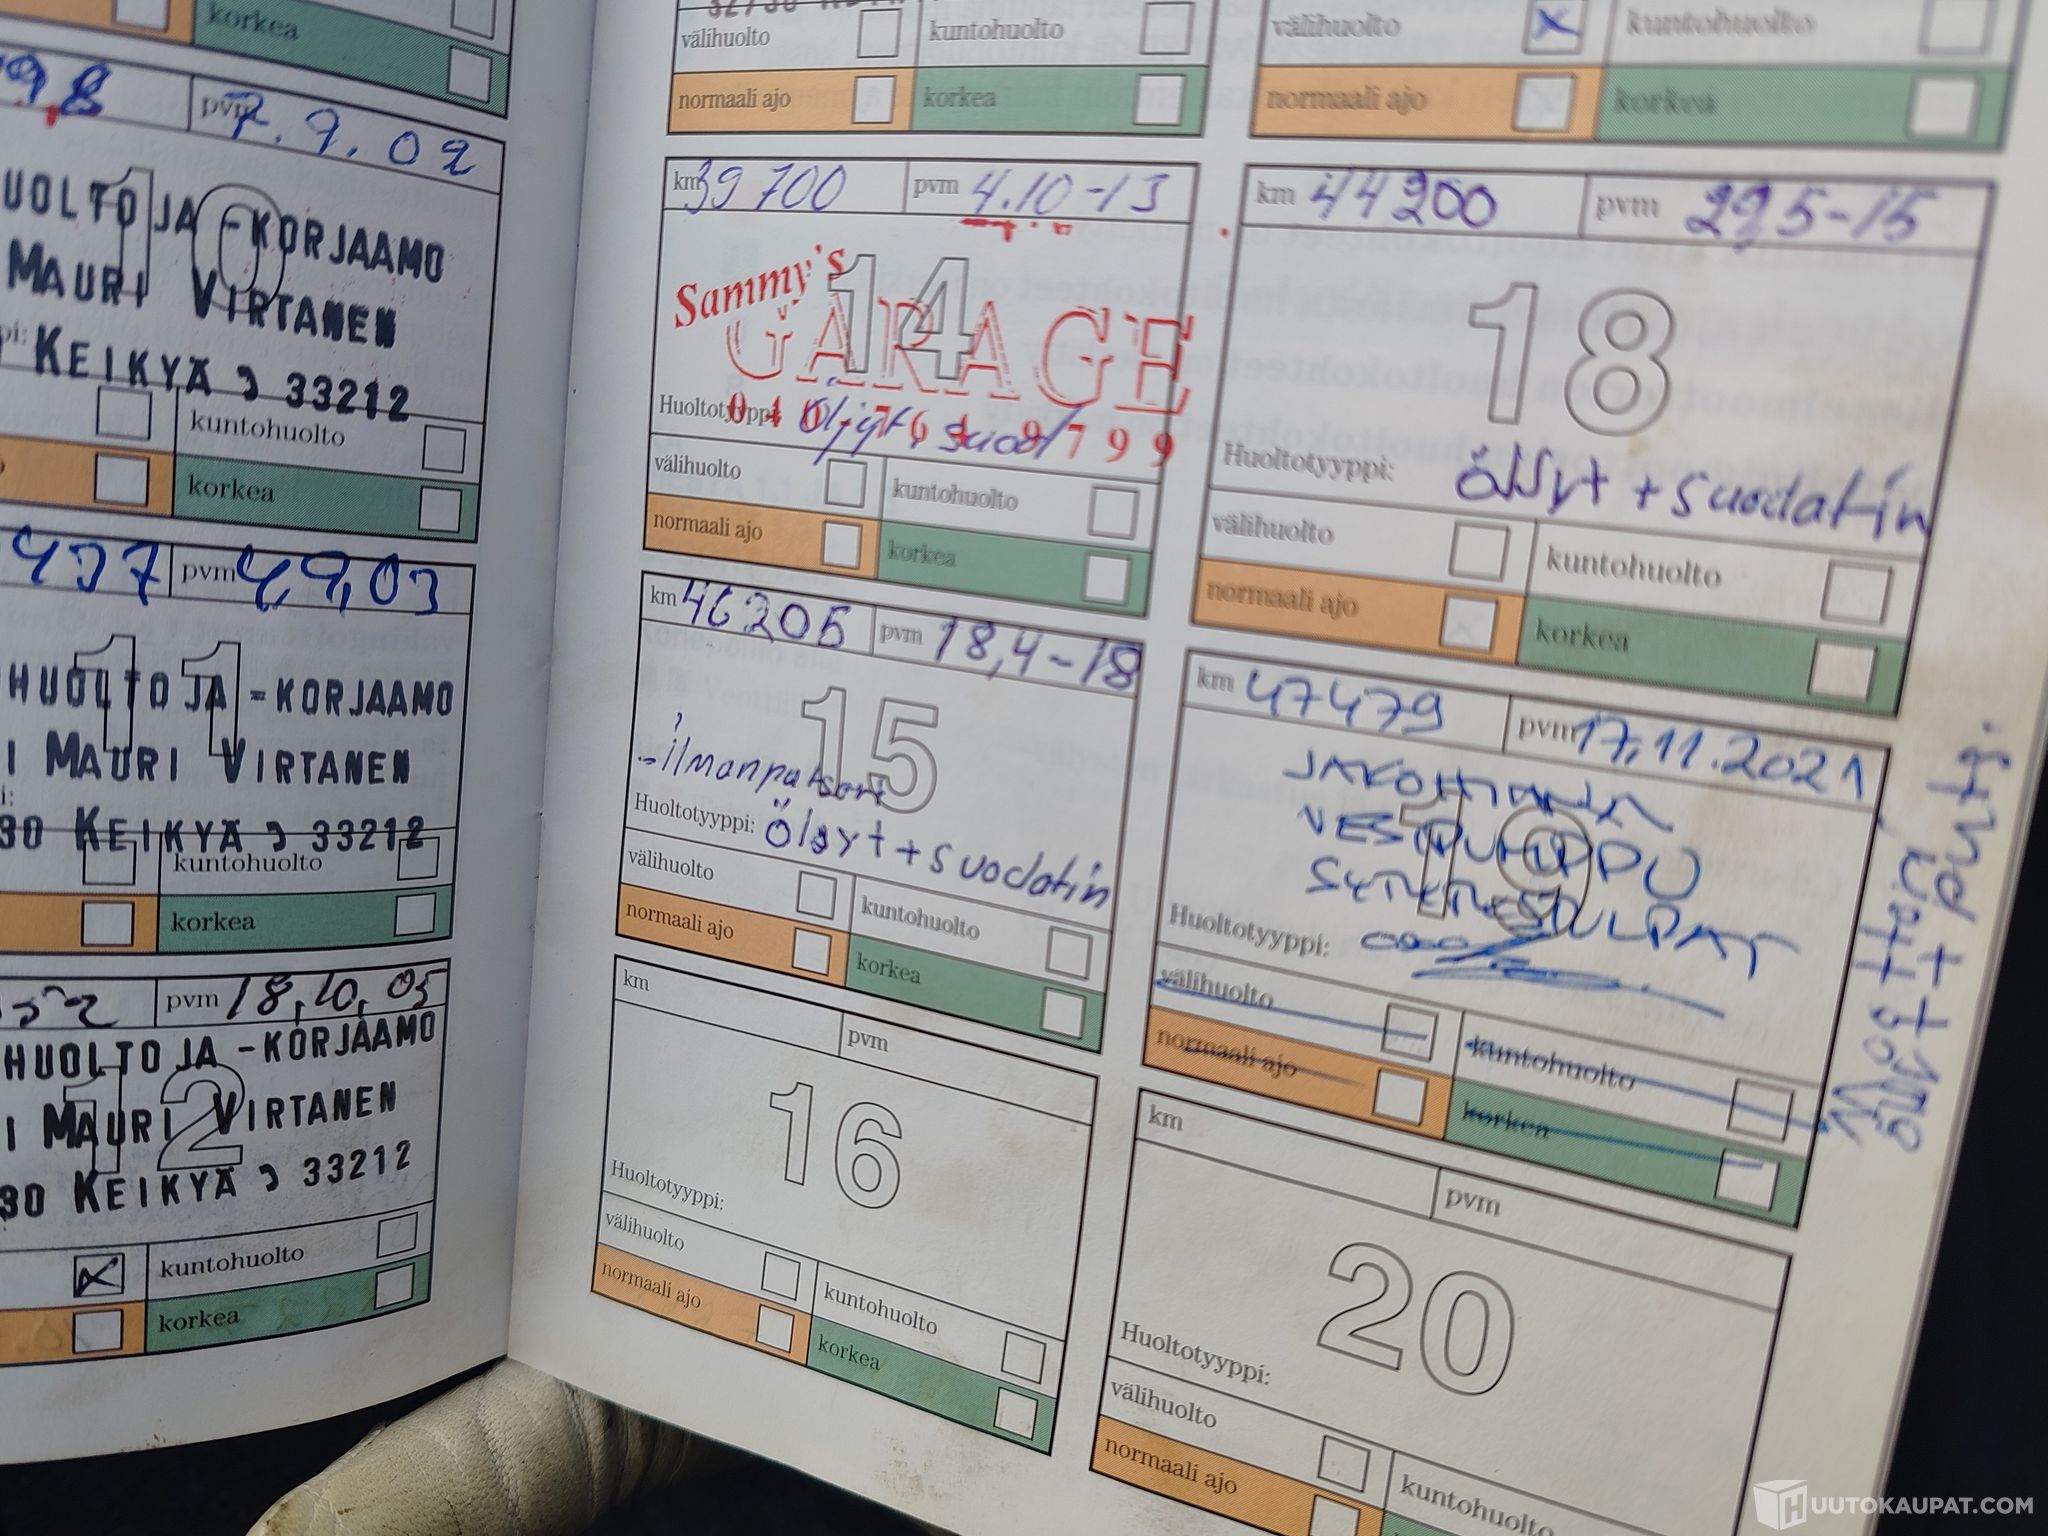 korkea
pvm 7.9.02
10
HUOLTO JA -KORJAAMO
MAURI VIRTANEN
KEIKYÄ 33212
kuntohuolto
korkea
437 pvm 4,9,03
11
HUOLTO JA -KORJAAMO
I MAURI VIRTANEN
30 KEIKYÄ 33212
kuntohuolto
korkea
pvm 18,10,05
12
HUOLTO JA -KORJAAMO
I MAURI VIRTANEN
30 KEIKYÄ 33212
kuntohuolto
korkea
välihuolto kuntohuolto
normaali ajo korkea
km 39700 pvm 4.10-13
14
Sammy's
GARAGE
Huoltotyyppi: Öljyt, suod
välihuolto kuntohuolto
normaali ajo korkea
km 46205 pvm 18,4-18
15
-ilmanpatsori
Huoltotyyppi: Öljyt + suodatin
välihuolto kuntohuolto
normaali ajo korkea
km pvm
16
Huoltotyyppi:
välihuolto kuntohuolto
normaali ajo korkea
välihuolto kuntohuolto
normaali ajo korkea
km 44200 pvm 29,5-15
18
Huoltotyyppi: öljyt + suodatin
välihuolto kuntohuolto
normaali ajo korkea
km 47479 pvm 17.11.2021
JAKOHIHNA
19
VESIPUMPPU
Huoltotyyppi:
välihuolto kuntohuolto
normaali ajo korkea
km pvm
20
Huoltotyyppi:
välihuolto kuntohuolto
normaali ajo
HUUTOKAUPAT.COM